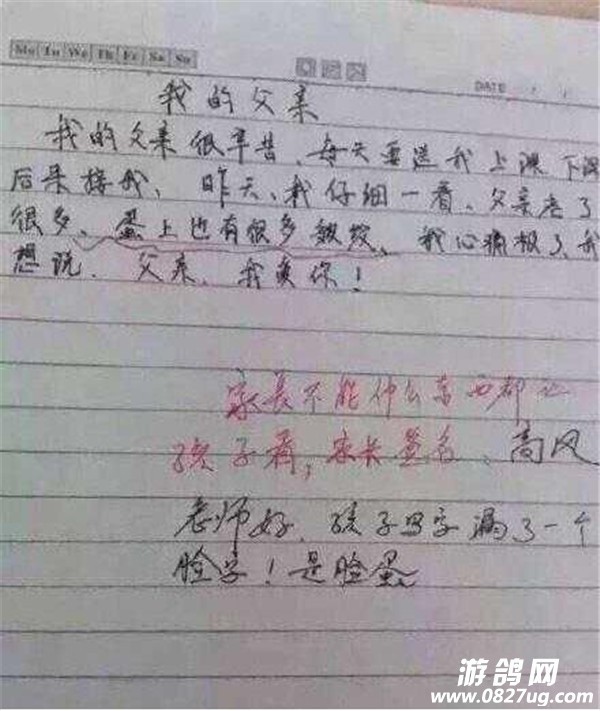 Mo Tu We Th Fr Sa Su
DATE / /
我的父亲
我的父亲很辛苦、每天要送我上课下课
后来接我、昨天、我仔细一看、父亲老了
很多、蛋上也有很多皱纹、我心痛极了、我
想说、父亲、我爱你!
家长不能什么东西都让
孩子看,家长签名、高风
老师好、孩子写字漏了一个
脸字!是脸蛋
游鸽网
www.0827ug.com